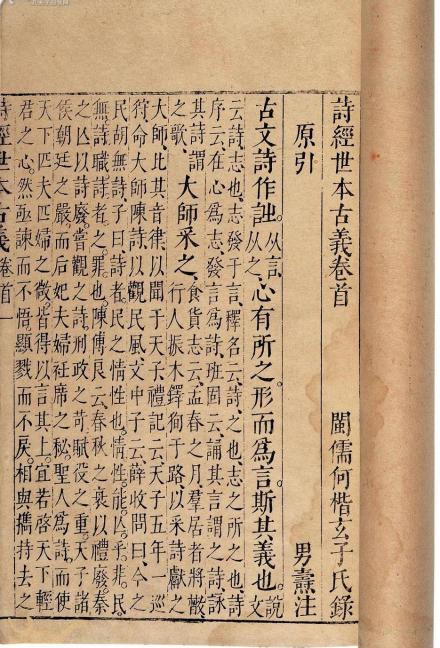 詩經世本古義卷首
閩儒何楷玄子氏錄
原引
男燾注
古文詩作𧥳。从言从之。心有所之。形而為言。斯其義也。說文
云、詩、志也、志發于言、釋名云、詩、之也、志之所之也、詩
序云、在心為志、發言為詩、班固云、誦其言謂之詩、詠
其詩謂之歌、大師采之、食貨志云、孟春之月、羣居者將散、
行人振木鐸徇于路以采詩、獻之
大師、比其音律、以聞于天子、禮記云、天子五年一巡
狩、命大師陳詩、以觀民風、文中子云、薛收問曰、今之
民胡無詩、子曰、詩者、民之情性也、情性能亾乎、非民
無詩、職詩者之罪也、陳傅良云、春秋之衰以禮廢、秦
之亾以詩廢、嘗觀之詩、刑政之苛、賦役之重、天子諸
侯朝廷之嚴、而后妃夫婦衽席之秘、聖人為詩、而使
天下匹夫匹婦之微、皆得以言其上、宜若啓天下輕
君之心、然亟諫而不悟、顯戮而不戾、相與攜持去之
詩經世本古義 卷首 一